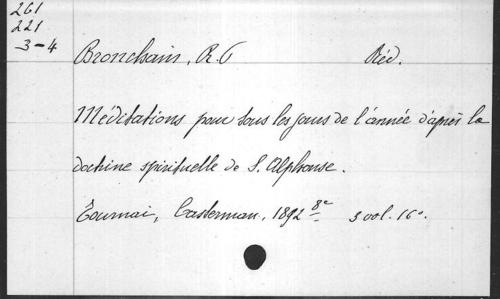 261
221
3-4
Bronchain, R. P. Réd.
Méditations pour tous les jours de l'année d'après la
doctrine spirituelle de S. Alphonse.
Tournai, Casterman, 1892 8e 3 vol. 16o.